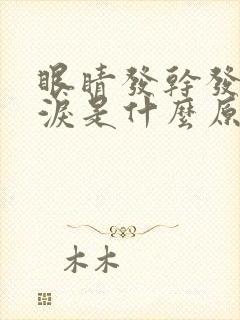 眼睛發幹發
淚是什麼原
木木